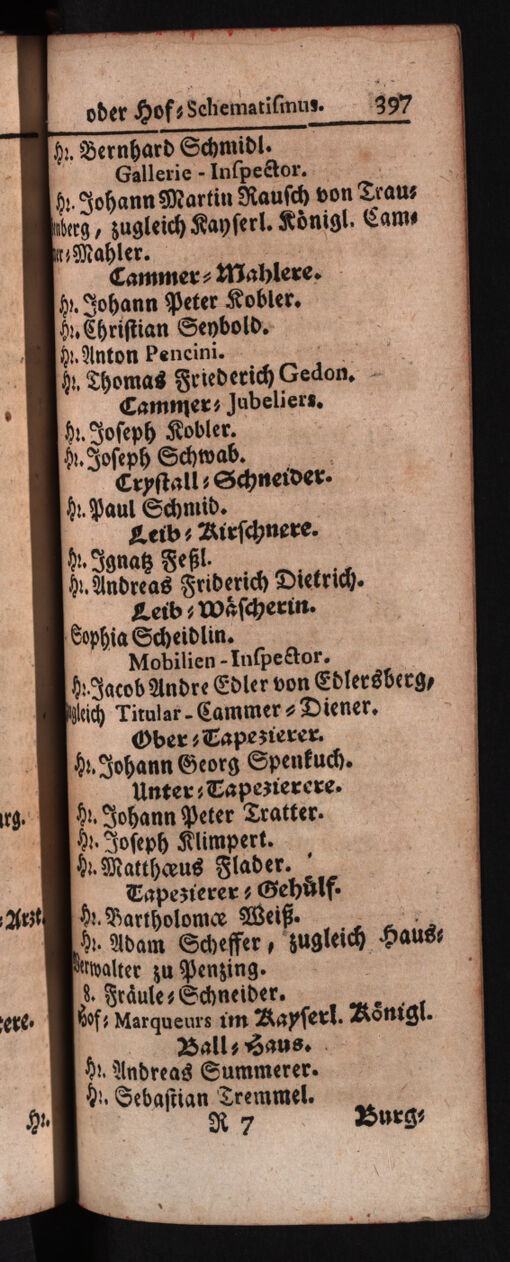 oder Hof-Schematismus. 397
Hr. Bernhard Schmidl.
Gallerie-Inspector.
Hr. Johann Martin Rausch von Trau-
enberg, zugleich Kayserl. Königl. Cam-
mer-Mahler.
Cammer-Mahlere.
Hr. Johann Peter Kobler.
Hr. Christian Seybold.
Hr. Anton Pencini.
Hr. Thomas Friederich Gedon.
Cammer-Jubeliers.
Hr. Joseph Kobler.
Hr. Joseph Schwab.
Crystall-Schneider.
Hr. Paul Schmid.
Leib-Kirschnere.
Hr. Ignatz Feßl.
Hr. Andreas Friderich Dietrich.
Leib-Wäscherin.
Sophia Scheidlin.
Mobilien-Inspector.
Hr. Jacob Andre Edler von Edlersberg,
zugleich Titular-Cammer-Diener.
Ober-Tapezierer.
Hr. Johann Georg Spenkuch.
Unter-Tapezierere.
Hr. Johann Peter Tratter.
Hr. Joseph Klimpert.
Hr. Matthœus Flader.
Tapezierer-Gehülf.
Hr. Bartholomœ Weiß.
Hr. Adam Scheffer, zugleich Haus-
Verwalter zu Penzing.
8. Fräule-Schneider.
Hof-Marqueurs im Kayserl. Königl.
Ball-Haus.
Hr. Andreas Summerer.
Hr. Sebastian Tremmel.
R 7 Burg-
arg.
-Arzt.
tere.
Hr.